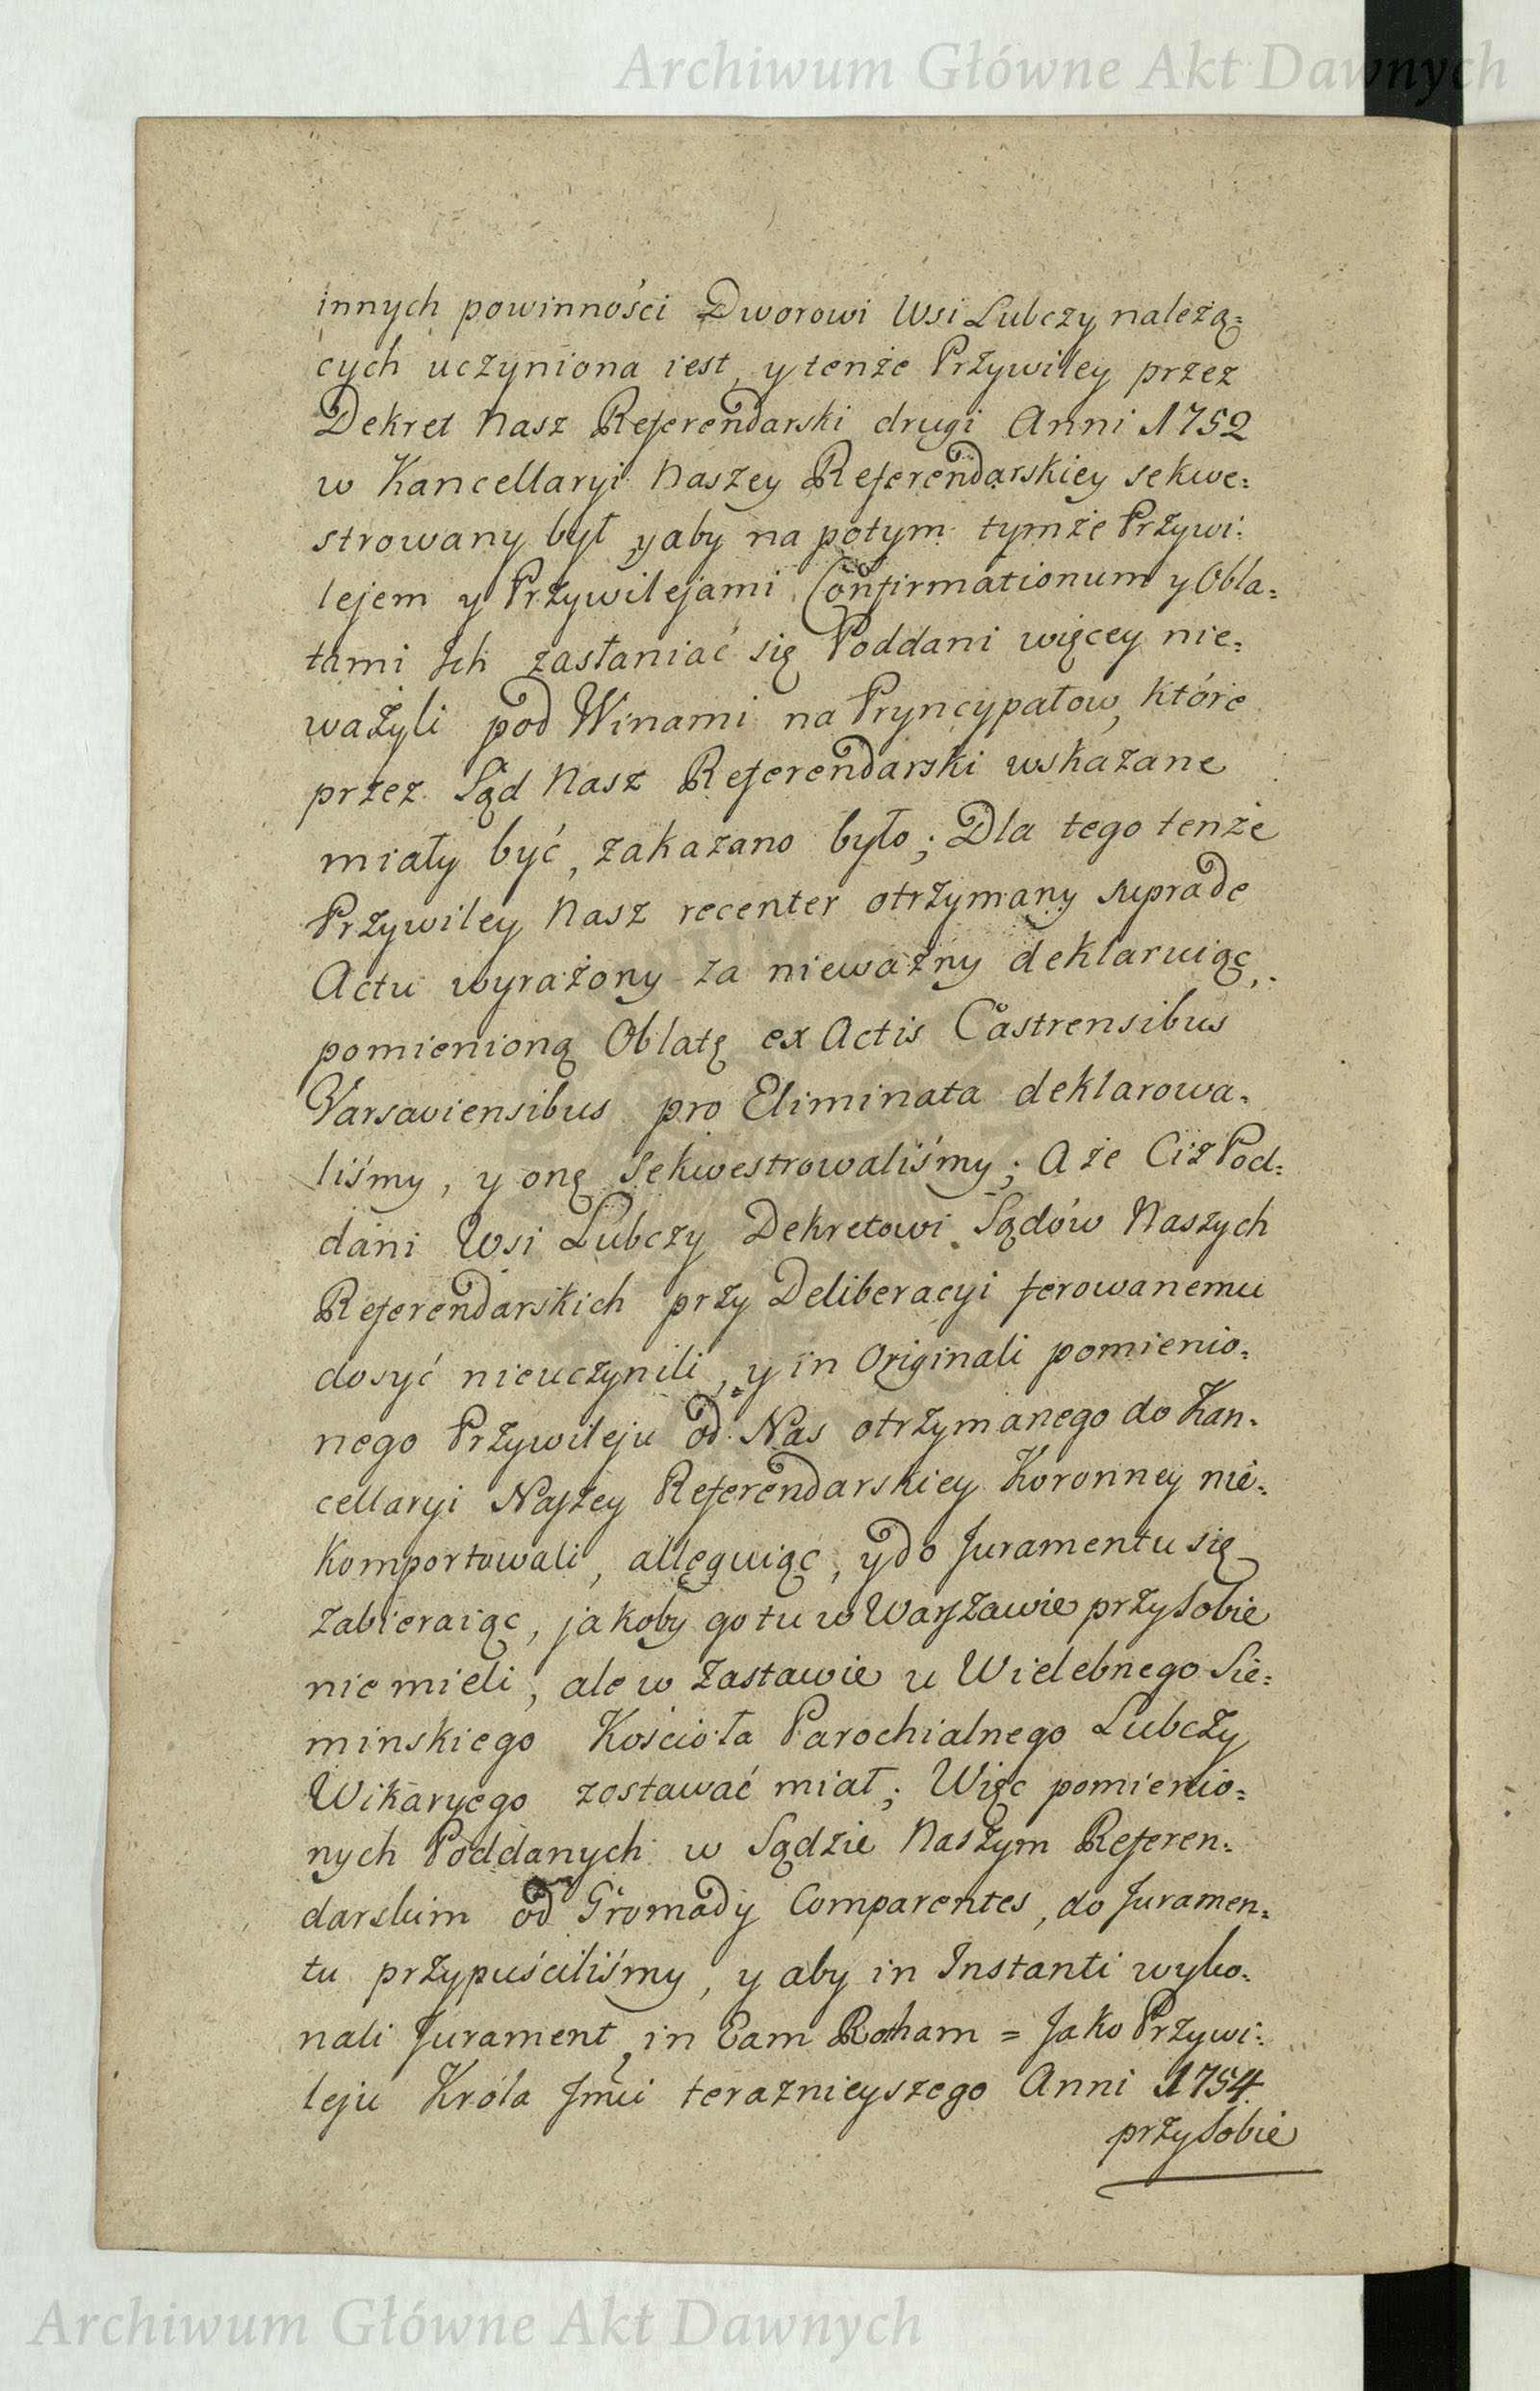 Archiwum Główne Akt Dawnych
innych powinności Dworowi Wsi Lubczy należą=
cych uczyniona iest, y tenże Przywiley przez
Dekret Nasz Referendarski drugi Anni 1752
w Kancellaryi Naszey Referendarskiey sekwe=
strowany był, y aby na potym tymże Przywi=
lejem y Przywilejami Confirmationum y Obla=
tami Ich zasłaniać się Poddani więcey nie=
ważyli pod Winami na Pryncypałow, które
przez Sąd Nasz Referendarski wskazane
miały być, zakazano było; Dla tego tenże
Przywiley Nasz recenter otrzymany supra de
Actu wyrażony za nieważny deklaruiąc,
pomienioną Oblatę ex Actis Castrensibus
Varsaviensibus pro Eliminata deklarowa=
liśmy, y onę Sekwestrowaliśmy; A że Ciż Pod=
dani Wsi Lubczy Dekretowi Sądów Naszych
Referendarskich przy Deliberacyi ferowanemu
dosyć nieuczynili, y in Originali pomienio=
nego Przywileju od Nas otrzymanego do Kan=
cellaryi Naszey Referendarskiey Koronney nie=
komportowali, alleguiąc, y do Juramentu się
zabieraiąc, jakoby go tu w Warszawie przy sobie
nie mieli, ale w Zastawie u Wielebnego Sie=
minskiego Kościoła Parochialnego Lubczy
Wikaryego zostawać miał; Więc pomienio=
nych Poddanych w Sądzie Naszym Referen=
darskim od Gromady Comparentes, do Juramen=
tu przypuściliśmy, y aby in Instanti wyko=
nali Jurament, in Eam Rotham = Jako Przywi=
leju Króla Jmci teraznieyszego Anni 1754
przy sobie
Archiwum Główne Akt Dawnych